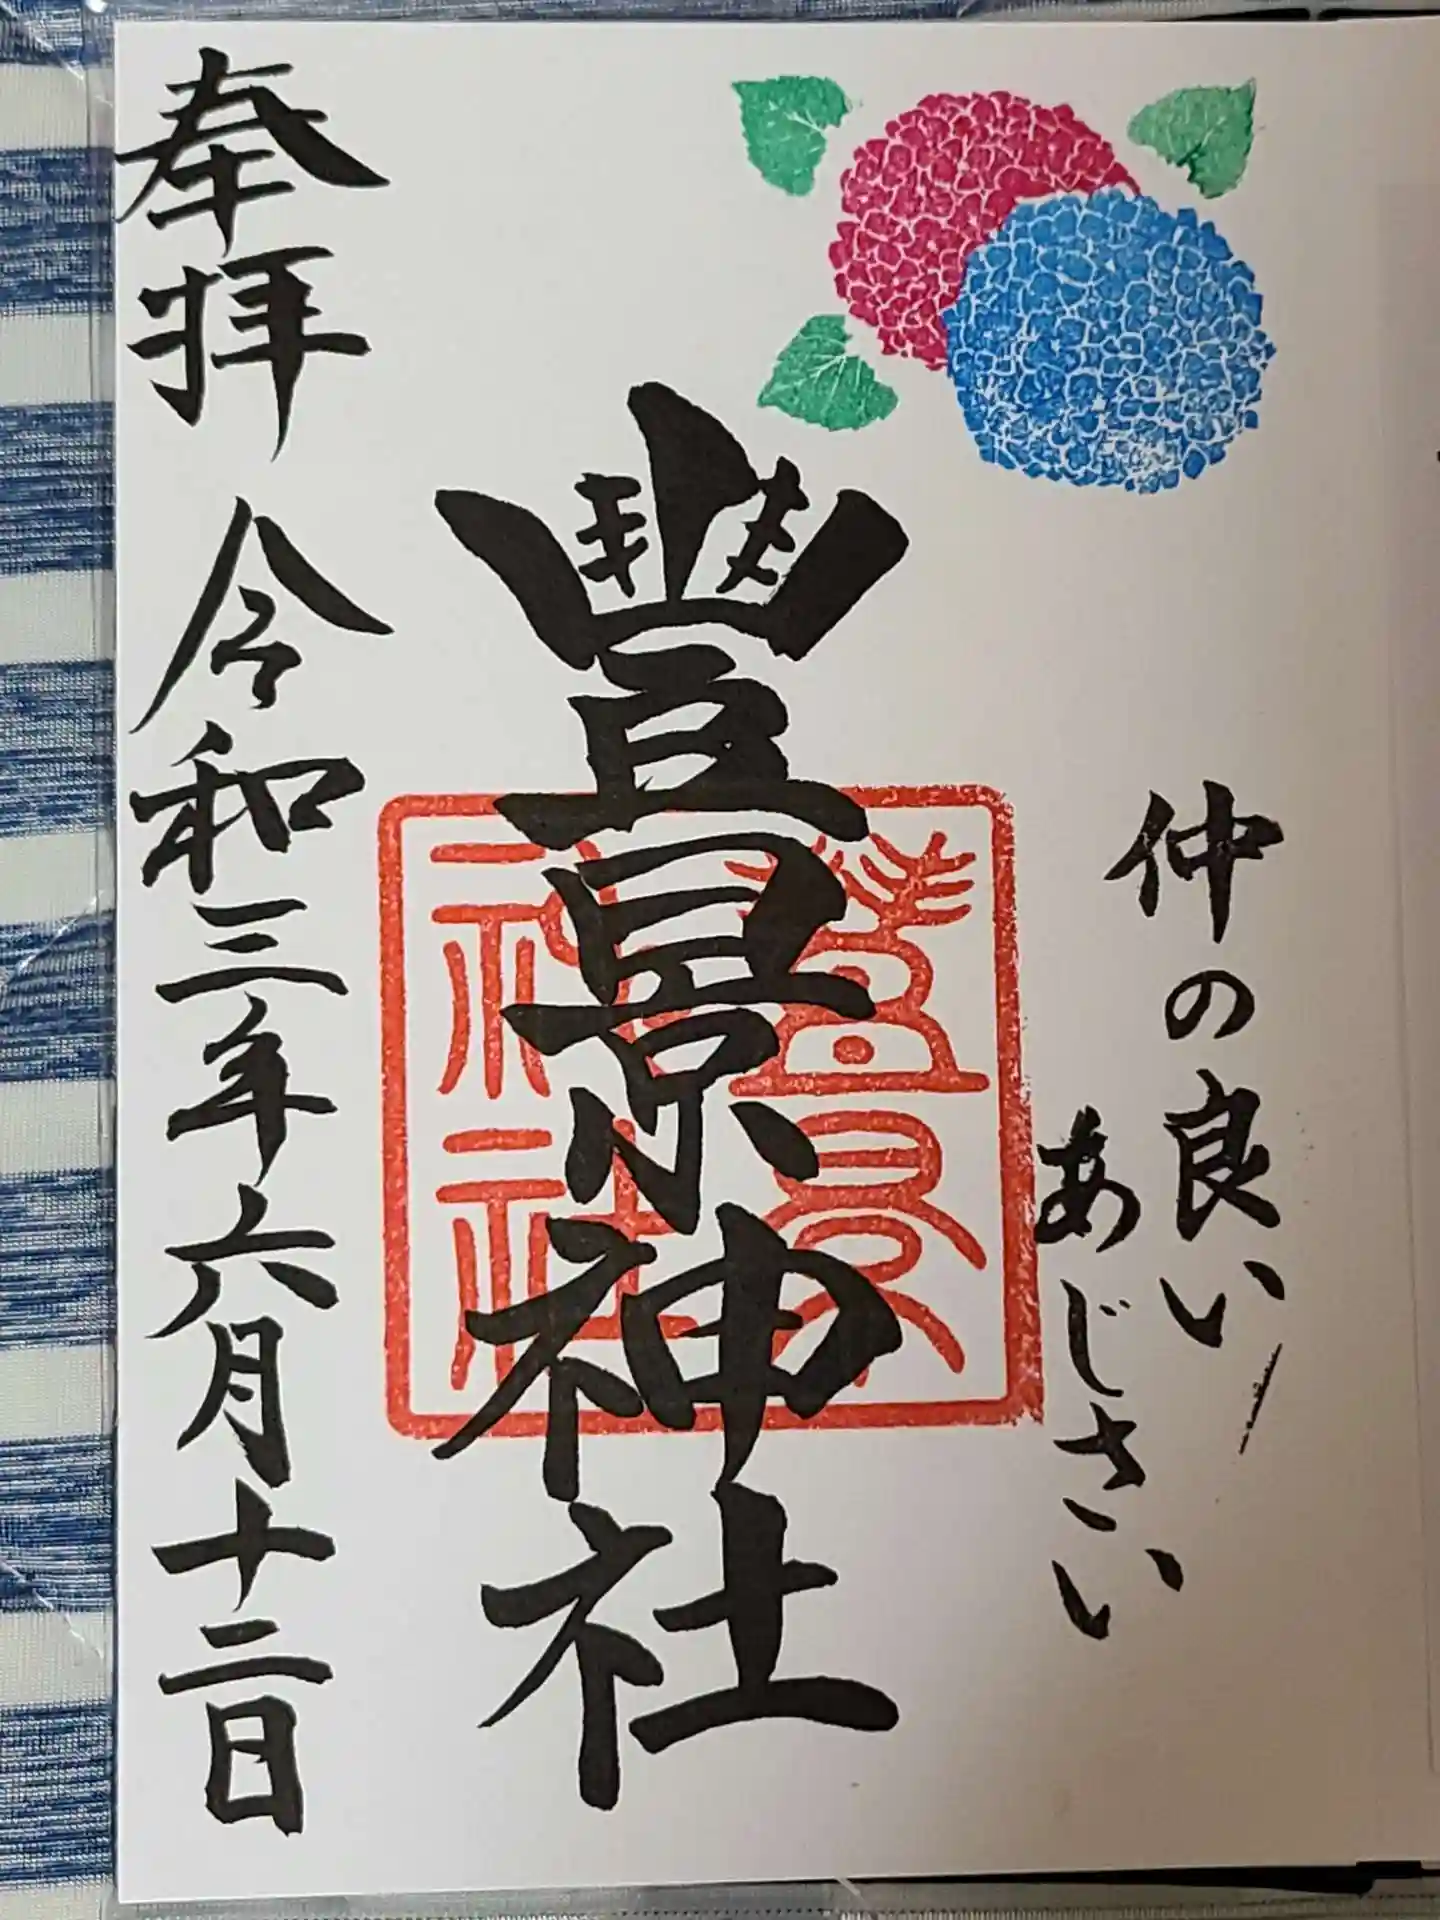 仲の良い
あじさい
豐景神社
豐景
神社
奉拝 令和三年六月十二日